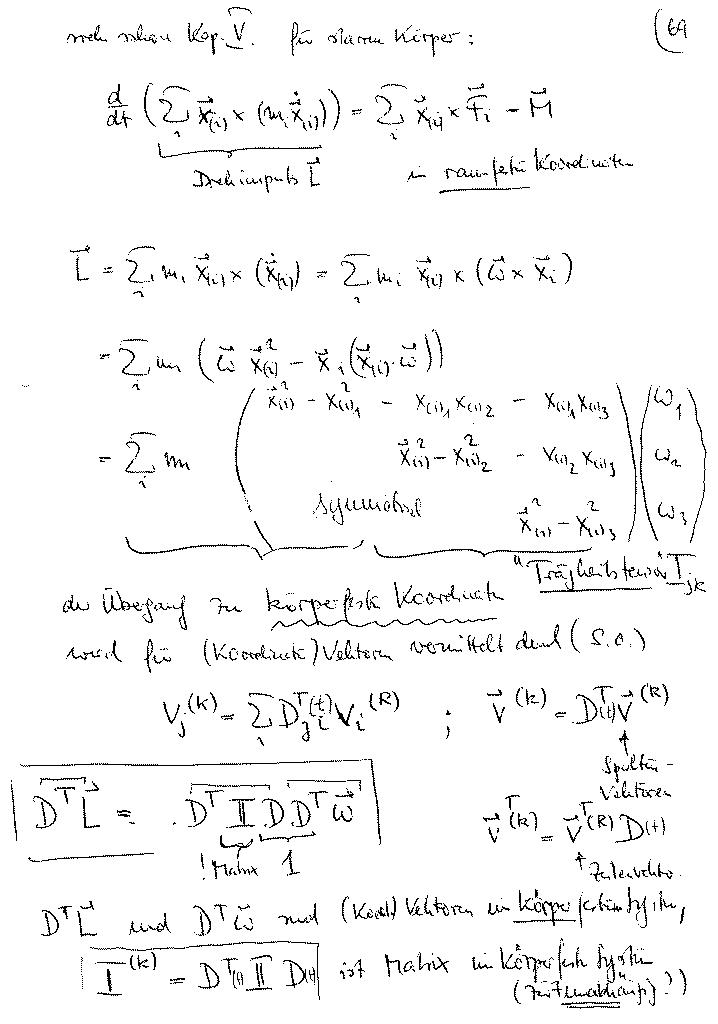 siehe schon Kap. V. für starren Körper: (69
d/dt (∑_i x⃗_(i) × (m_i ẋ⃗_(i))) = ∑_i x⃗_(i) × F⃗_i = M⃗
Drehimpuls L⃗ in raumfesten Koordinaten
L⃗ = ∑_i m_i x⃗_(i) × (ẋ⃗_(i)) = ∑_i m_i x⃗_(i) × (ω⃗ × x⃗_i)
= ∑_i m_i (ω⃗ x⃗_(i)² − x⃗_i (x⃗_(i)·ω⃗))
= ∑_i m_i ( x⃗_(i)² − x_(i)1² − x_(i)1 x_(i)2 − x_(i)1 x_(i)3 ) ( ω_1 )
x⃗_(i)² − x_(i)2² − x_(i)2 x_(i)3 ω_2
symmetrisch x⃗_(i)² − x_(i)3² ω_3
"Trägheitstensor" I_jk
der Übergang zu körperfesten Koordinaten
wird für (Koordinaten) Vektoren vermittelt durch (s.o.)
V_j^(k) = ∑_i D^T_ji(t) V_i^(R) ; v⃗^(k) = D^T(t) v⃗^(R)
Spalten-
Vektoren
D^T L⃗ = D^T I D D^T ω⃗ v⃗^T(k) = v⃗^T(R) D(t)
! Matrix 1 Zeilenvektor.
D^T L⃗ und D^T ω⃗ sind (Koord) Vektoren im körperfesten System,
I^(k) = D^T(t) I D(t) ist Matrix im körperfesten System
(zeitunabhängig!?)